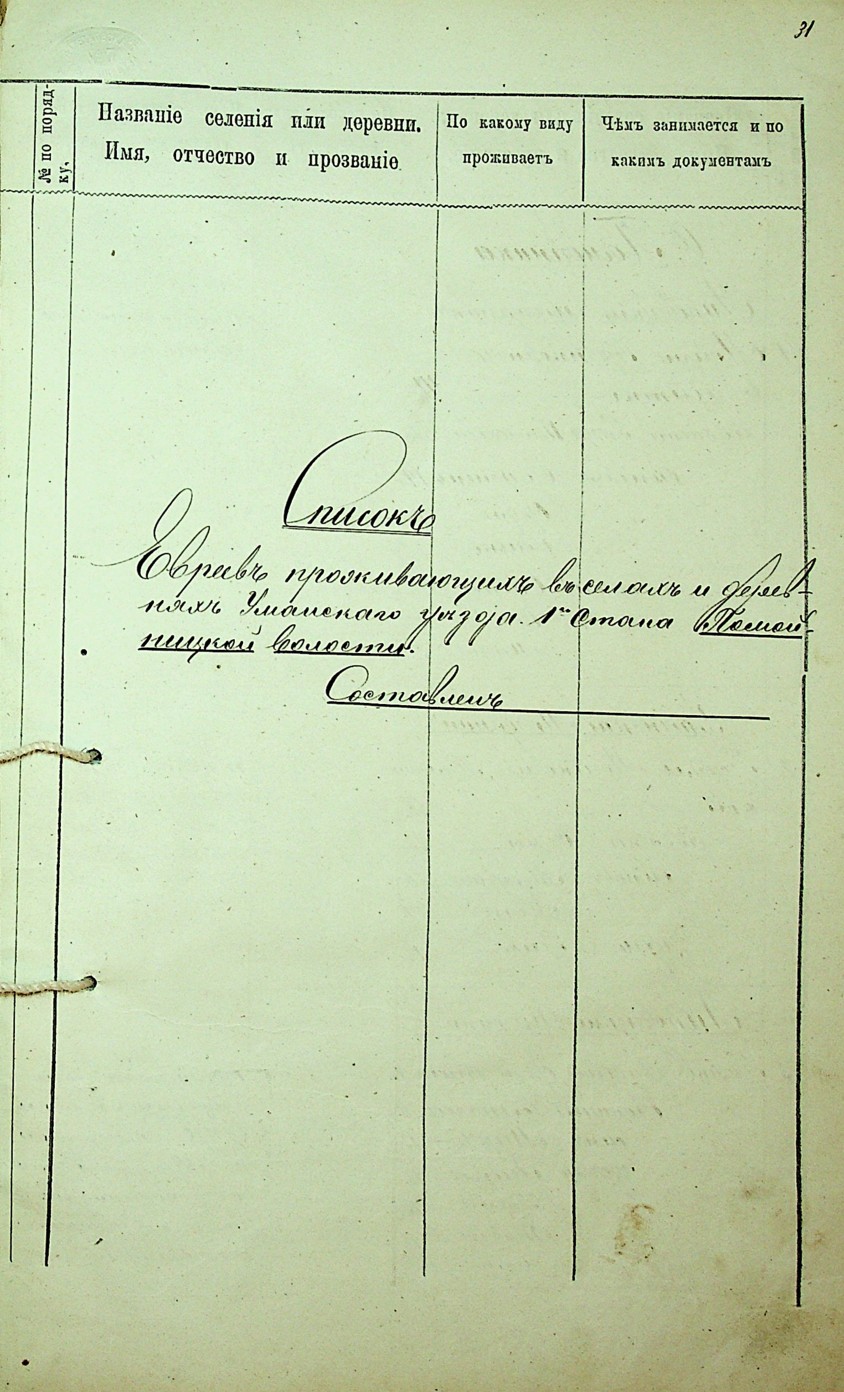 31
№ по поряд-
ку,
Названіе селенія или деревни.
Имя, отчество и прозваніе.
По какому виду
проживаетъ
Чѣмъ занимается и по
какимъ документамъ
Списокъ
Евреевъ проживающихъ въ селахъ и дерев-
няхъ Уманскаго уѣзда. 1го Стана Помой-
ницкой волости.
Составленъ